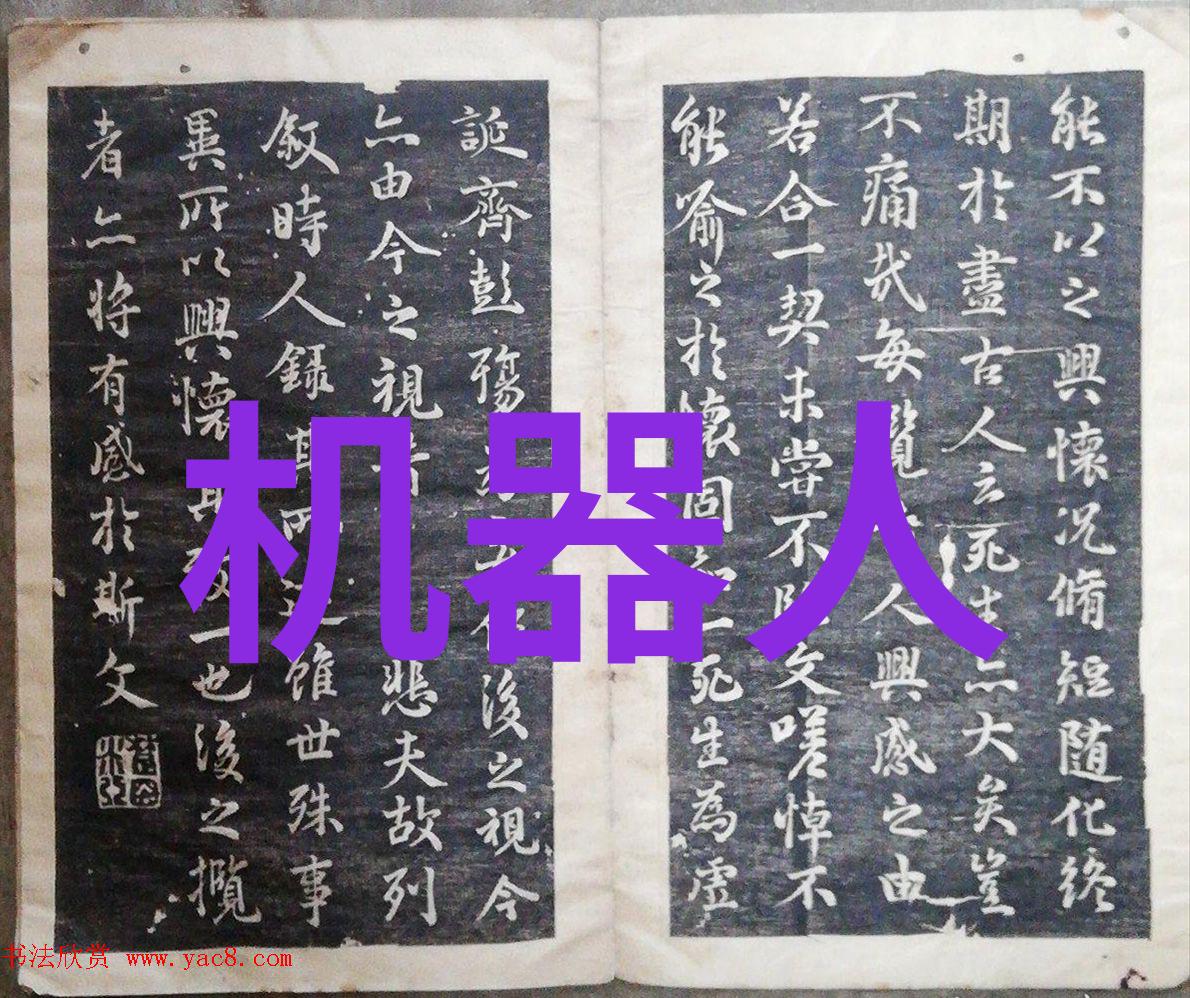 能不以之興懷况脩短随化终
期於盡古人云死生亦大矣豈
不痛哉每攬人興感之由
若合一契未嘗不臨文嗟悼不
能喻之於懷固一死生為虛
誕齊彭殤後之視今
亦由今之視昔悲夫故列
敘時人錄其所雖世殊事
異所以興懷其致一也後之攬
者亦將有感於斯文
机器人
书法欣赏 www.yac8.com